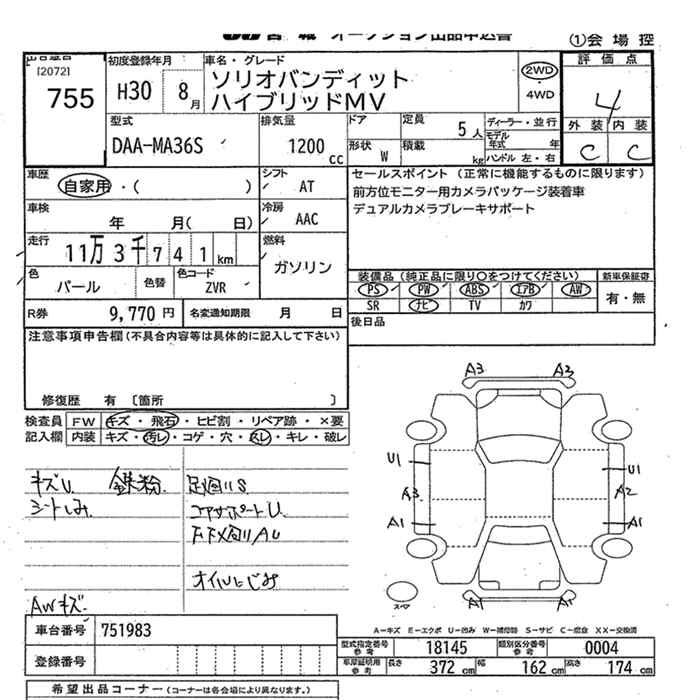 オークション出品申込書
①会場控
出品番号
[2072]
755
初度登録年月
H30 8月
車名・グレード
ソリオバンディット
ハイブリッドMV
2WD
・
4WD
評価点
4
外装 内装
C C
型式
DAA-MA36S
排気量
1200 cc
ドア
形状 W
定員 5人
積載 kg
ディーラー・並行
モデル年式 年
ハンドル 左・右
車歴
自家用・( )
シフト
AT
セールスポイント (正常に機能するものに限ります)
前方位モニター用カメラパッケージ装着車
デュアルカメラブレーキサポート
車検
年 月( 日)
冷房
AAC
走行
11万3千741km
燃料
ガソリン
色
パール
色替
色コード
ZVR
装備品 (純正品に限り○をつけてください)
PS PW ABS エアB AW
SR ナビ TV カワ
新車保証書
有・無
R券 9,770円
名変通知期限 月 日
後日品
注意事項申告欄(不具合内容等は具体的に記入して下さい)
修復歴 有 〔箇所 〕
検査員記入欄
FW キズ・飛石・ヒビ割・リペア跡・×要
内装 キズ・汚レ・コゲ・穴・スレ・キレ・破レ
キズU 鉄粉 足廻りS
シートしみ コアサポートU
下廻りAU
オイルにじみ
AWキズ
A3 A3
U1 U1
A3 A2
A1 A1
A1 A1
スペア
A−キズ E−エクボ U−凹み W−補修跡 S−サビ C−腐食 XX−交換済
車台番号 751983
登録番号
型式指定番号 参考 18145
類別区分番号 参考 0004
車庫証明用 参考 長さ 372 cm 幅 162 cm 高さ 174 cm
希望出品コーナー (コーナーは各会場により異なります。)